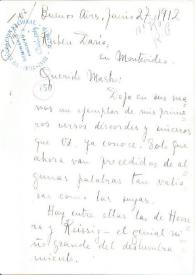 Buenos Aires, Junio 27, 1912
Rubén Darío,
en Montevideo.
Querido Maestro:
Dejo en sus ma-
nos un ejemplar de mis prime-
ros versos discordes y sinceros
que Vd. ya conoce. Solo que
ahora van precedidos de al-
gunas palabras tan valio-
sas como las suyas.
Hay entre ellas las de Herre-
ra y Reissig — el genial ni-
ño grande del deslumbra-
miento.